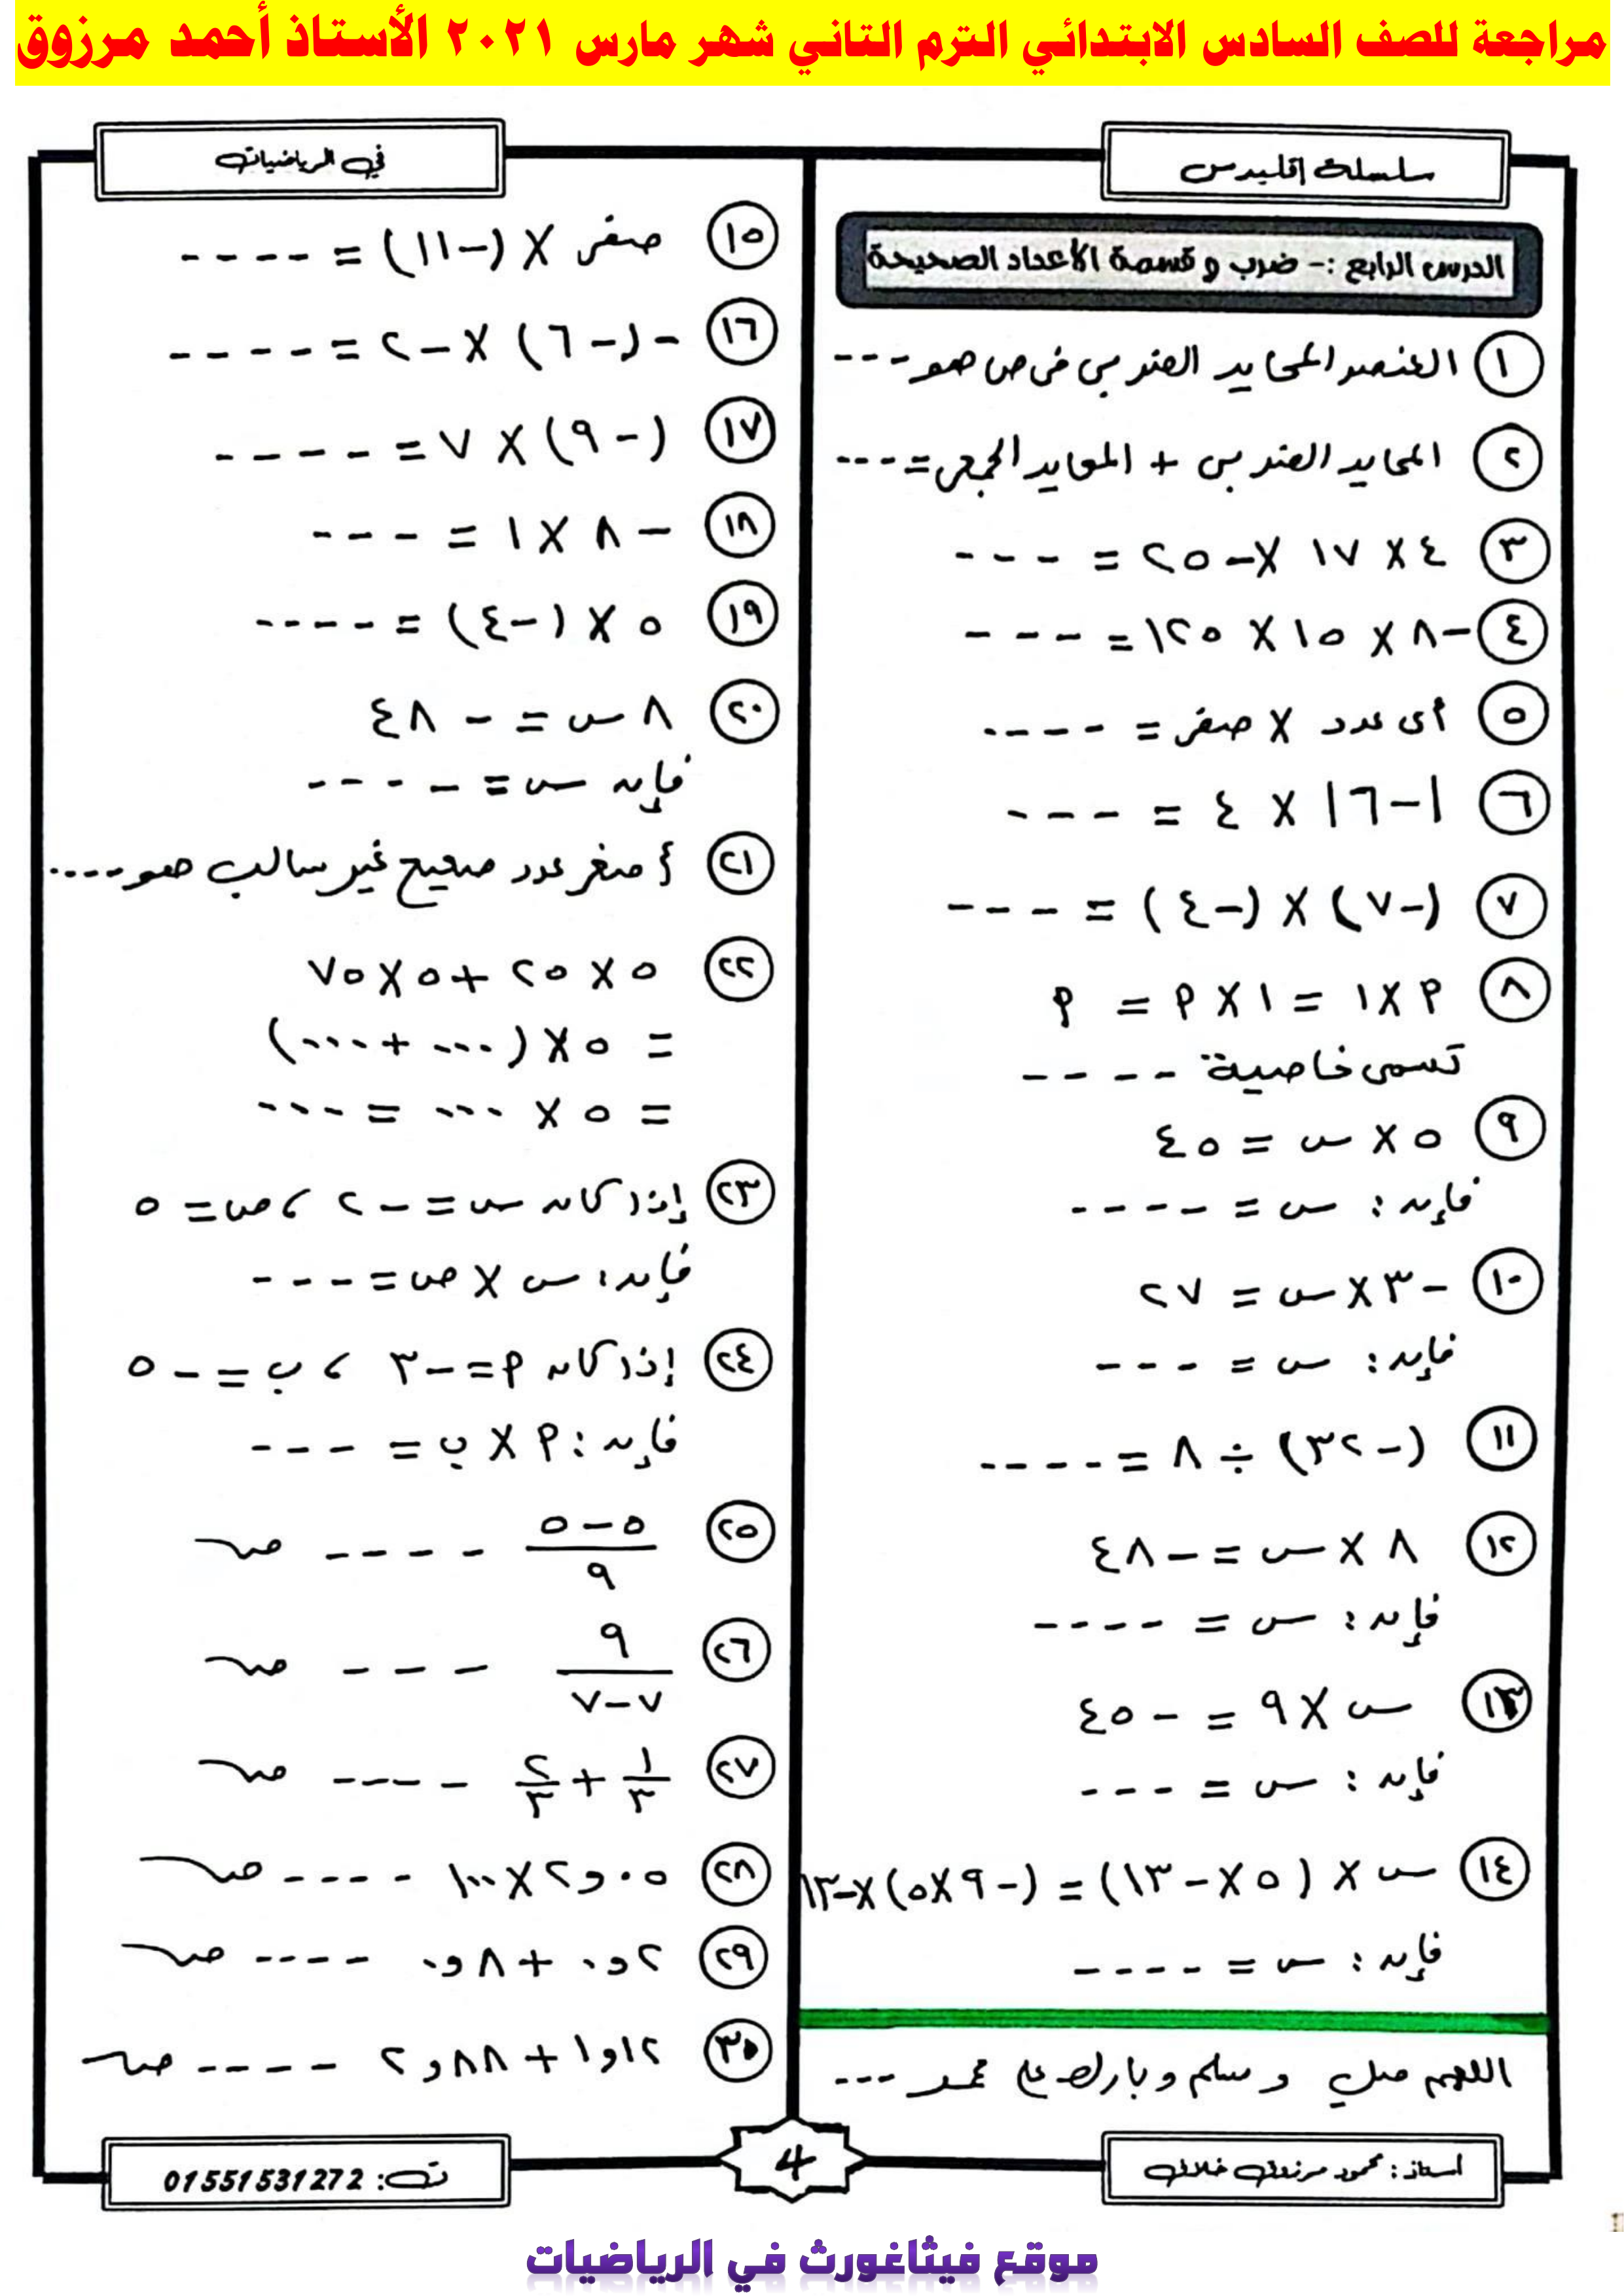 مراجعة للصف السادس الابتدائي الترم الثاني شهر مارس ٢٠٢١ الأستاذ أحمد مرزوق
سلسلة إقليدس
في الرياضيات
الدرس الرابع :- ضرب و قسمة الأعداد الصحيحة
١ العنصر المحايد الضربى فى ص هو ---
٢ المحايد الضربى + المحايد الجمعى = ---
٣ ٤ × ١٧ × -٢٥ = ---
٤ -٨ × ١٥ × ١٢٥ = ---
٥ أى عدد × صفر = ----
٦ |-٦| × ٤ = ---
٧ (-٧) × (-٤) = ---
٨ ٩ × ١ = ١ × ٩ = ٩
تسمى خاصية ----
٩ ٥ × س = ٤٥
فإن : س = ----
١٠ -٣ × س = ٢٧
فإن : س = ---
١١ (-٣٢) ÷ ٨ = ----
١٢ ٨ × س = -٤٨
فإن : س = ----
١٣ س × ٩ = -٤٥
فإن : س = ---
١٤ س × (٥ × -١٣) = (-٩ × ٥) × -١٣
فإن : س = ----
اللهم صل و سلم و بارك على محمد ---
١٥ صفر × (-١١) = ----
١٦ -(-٦) × -٢ = ----
١٧ (-٩) × ٧ = ----
١٨ -٨ × ١ = ---
١٩ ٥ × (-٤) = ----
٢٠ ٨ س = -٤٨
فإن س = ----
٢١ أصغر عدد صحيح غير سالب هو ----
٢٢ ٥ × ٢٥ + ٥ × ٧٥
= ٥ × (... + ...)
= ٥ × ... = ...
٢٣ إذا كان س = -٢ ، ص = ٥
فإن : س × ص = ---
٢٤ إذا كان ٩ = -٣ ، ب = -٥
فإن : ٩ × ب = ---
٢٥ ٥-٥/٩ ---- ص
٢٦ ٩/٧-٧ --- ص
٢٧ ١/٣ + ٢/٣ ---- ص
٢٨ ٢,٠٥ × ١٠٠ ---- ص
٢٩ ٠,٢ + ٠,٨ ---- ص
٣٠ ١,١٢ + ٢,٨٨ ---- ص
أستاذ : محمود مرزوق خلاف
4
ت : 01551531272
موقع فيثاغورث في الرياضيات